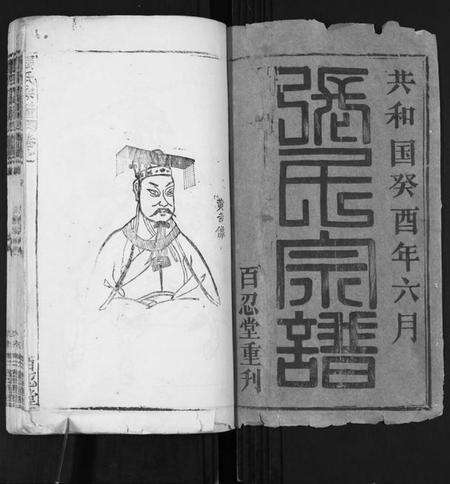 共和国癸酉年六月
張氏宗譜
百忍堂重刊
黃帝像
百忍堂